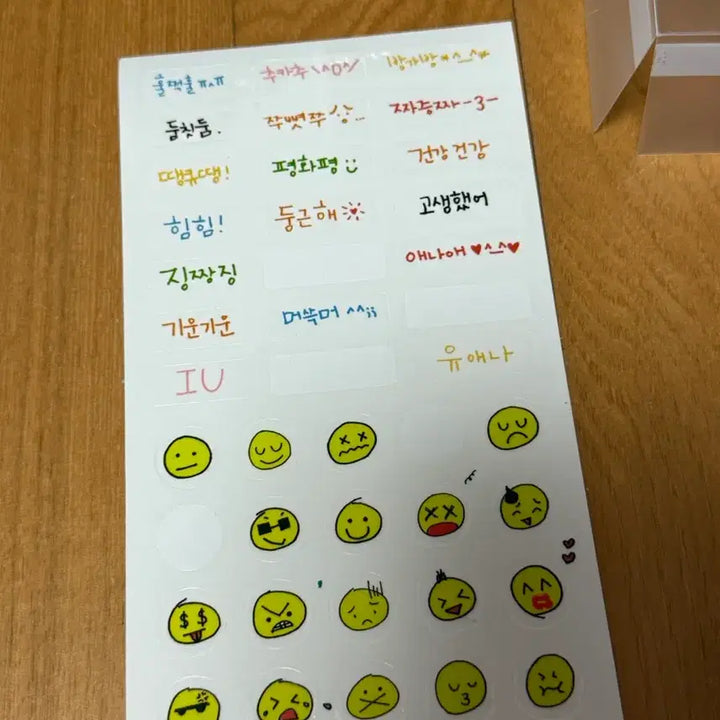 울적울 ㅠㅅㅠ
추카추 \^0^/
1방가방★^_^★
둠칫둠.
쭈뼛쭈
짜증짜 -3-
땡큐땡!
평화평
건강 건강
힘힘!
둥근해
고생했어
징짱징
애나애 ♥^_^♥
기운기운
머쓱머 ^^;;
IU
유애나